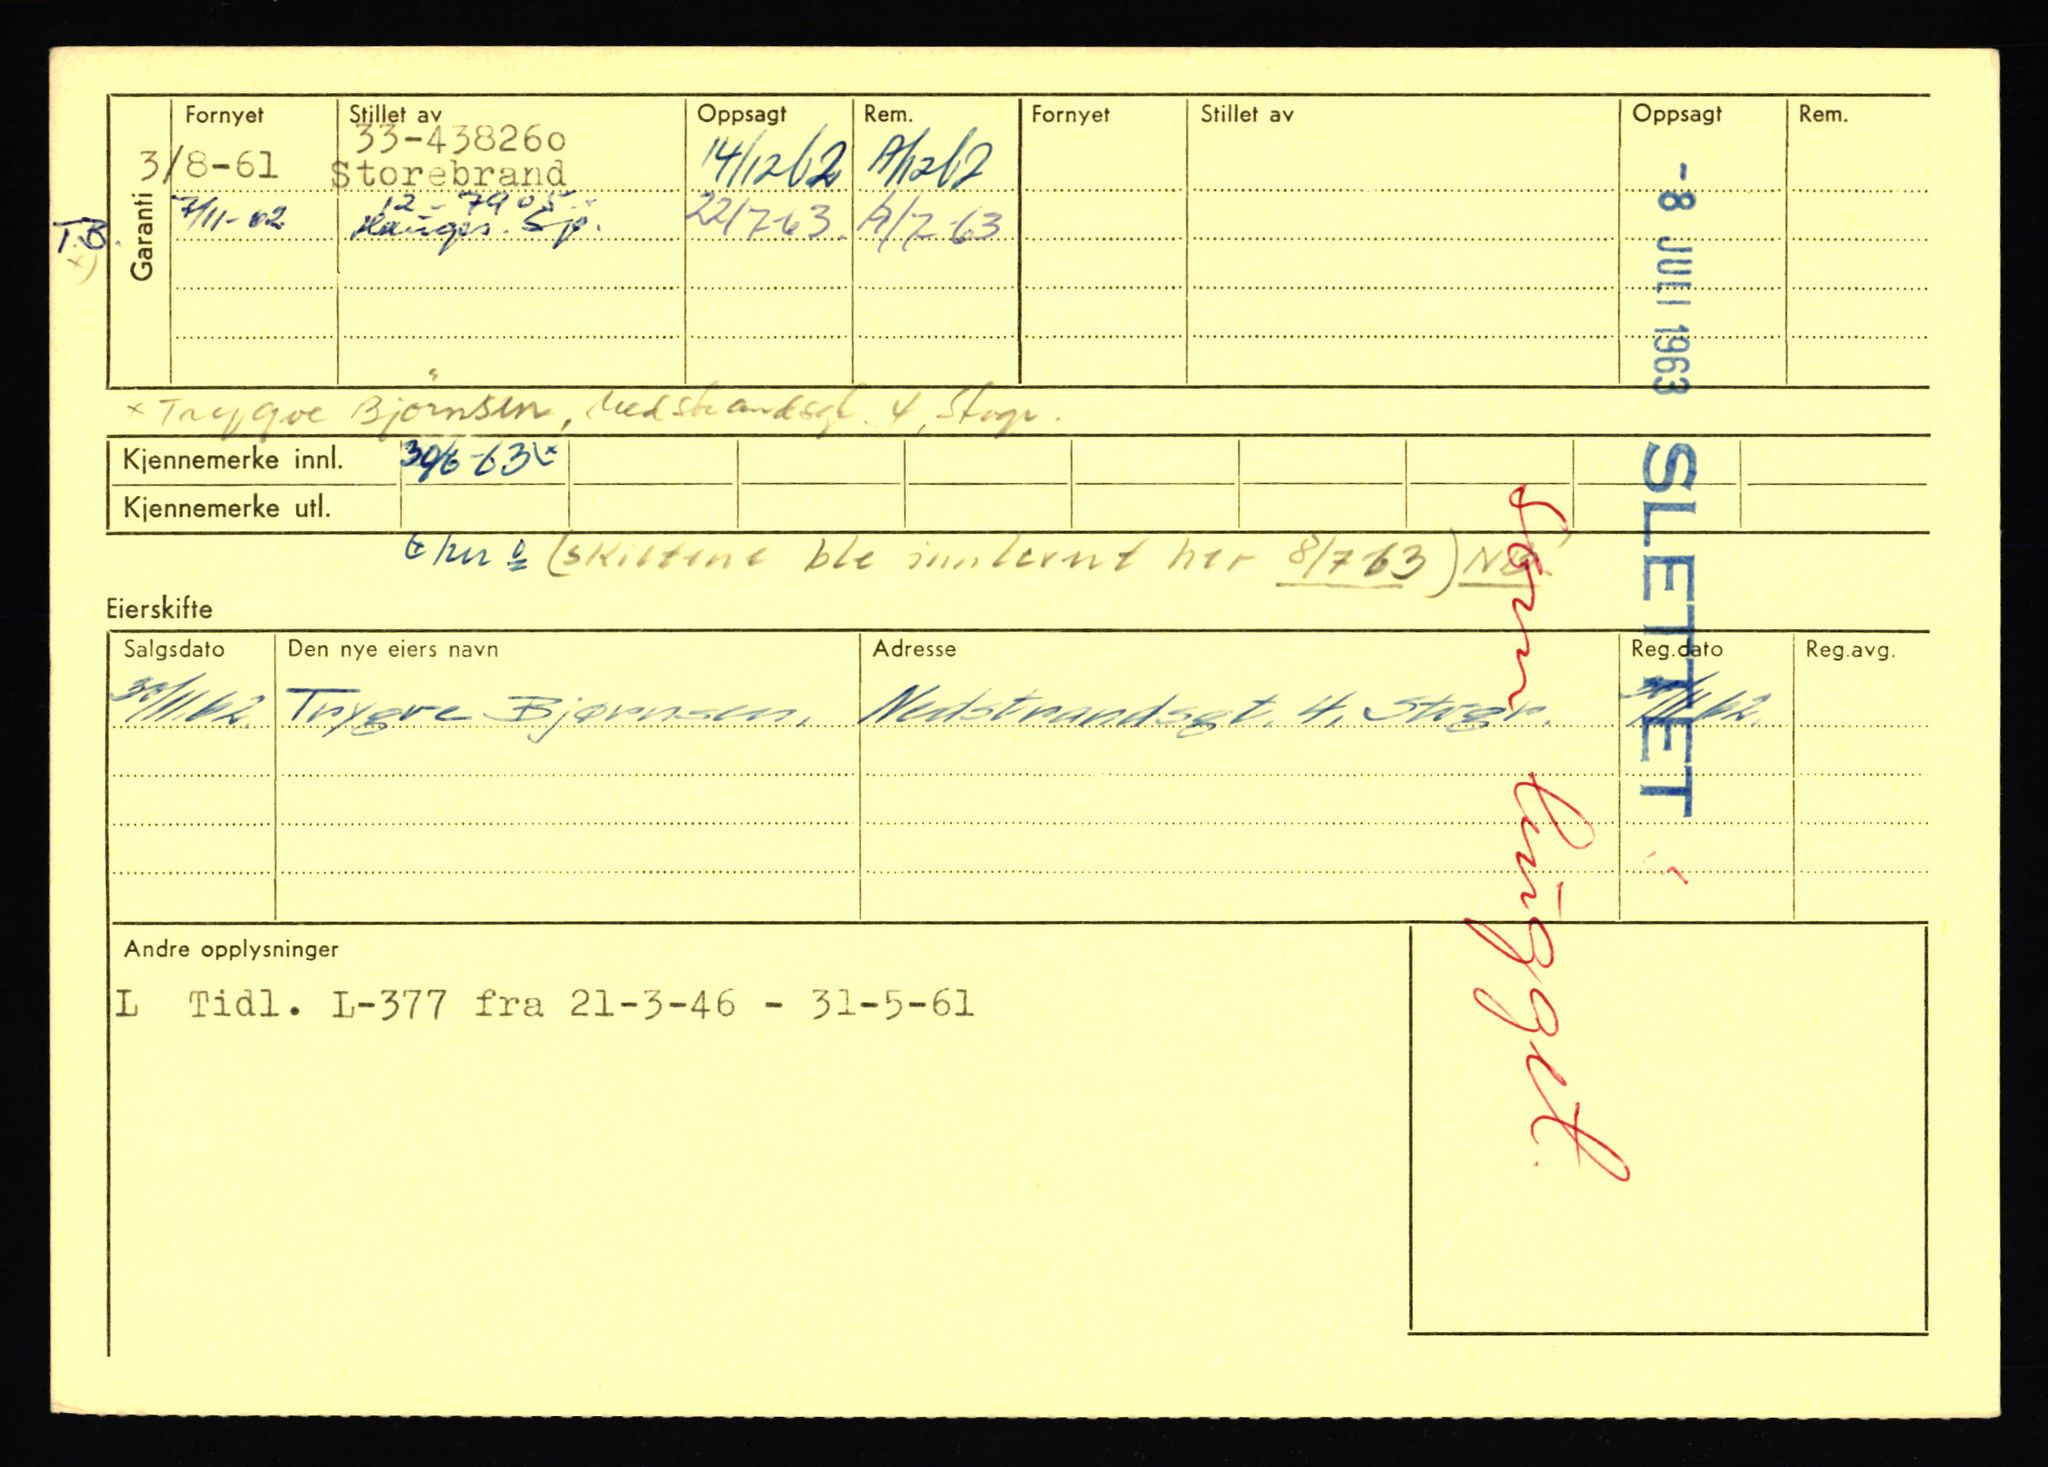 Fornyet Stillet av Oppsagt Rem. Fornyet Stillet av Oppsagt Rem.
33-438260
3/8-61 Storebrand 14/12 62 A/12 62
12-7905
7/11-62 Hauges. Sjø. 22/7-63. A/7-63
T.B.
x)
Garanti
x Trygve Bjørnsen, Nedstrandsgt. 4, Stvgr.
Kjennemerke innl. 30/6-63 x
Kjennemerke utl.
(skiltene ble innlevert her 8/7 63)
Eierskifte
Salgsdato Den nye eiers navn Adresse Reg.dato Reg.avg.
30/11 62 Trygve Bjørnsen, Nedstrandsgt. 4, Stvgr. 30/11 62.
Andre opplysninger
L Tidl. L-377 fra 21-3-46 - 31-5-61
-8 JULI 1963 SLETTET
Som lugget.